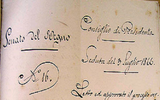 Senato del Regno
N° 16.
Consiglio di Presidenza
Seduta del 9 Luglio 1866.
Letto ed approvato il